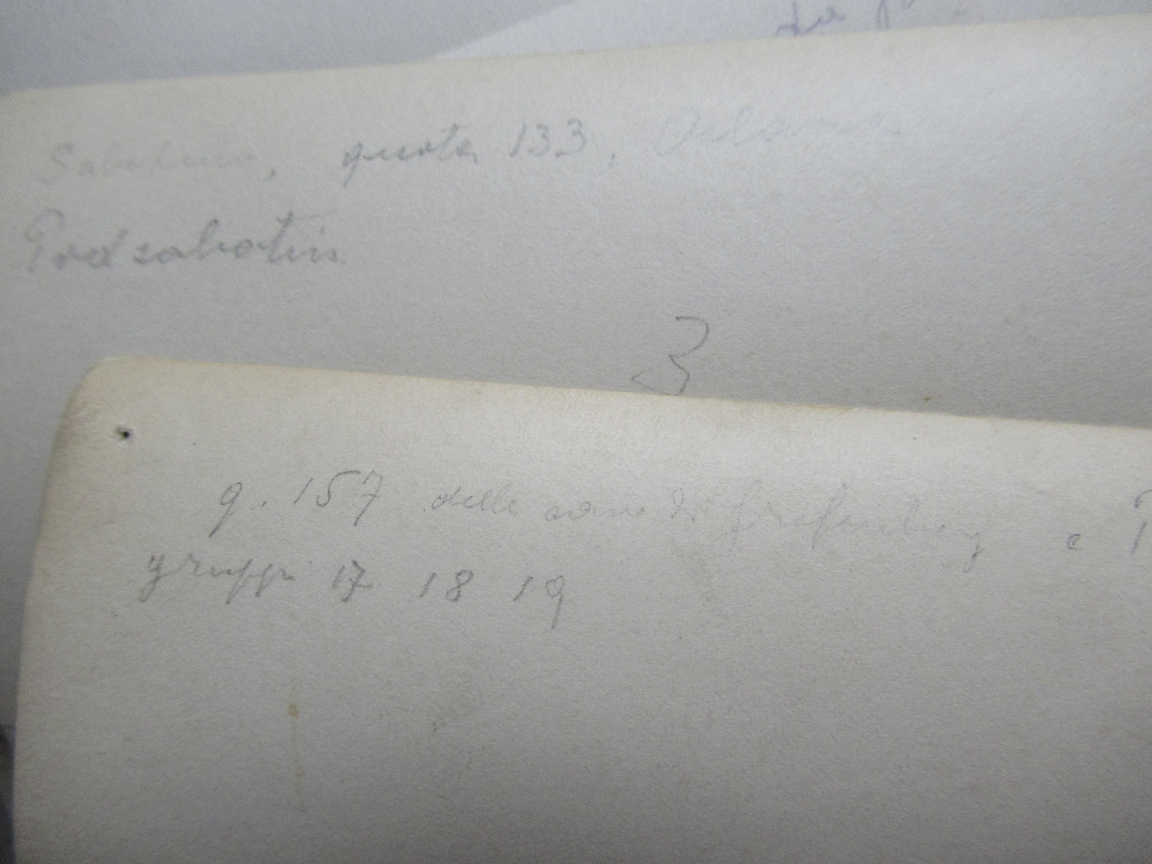 Sabotino, quota 133, Oslavia
Podsabotin
3
q. 157 delle case di Grafenberg e
gruppi 17 18 19